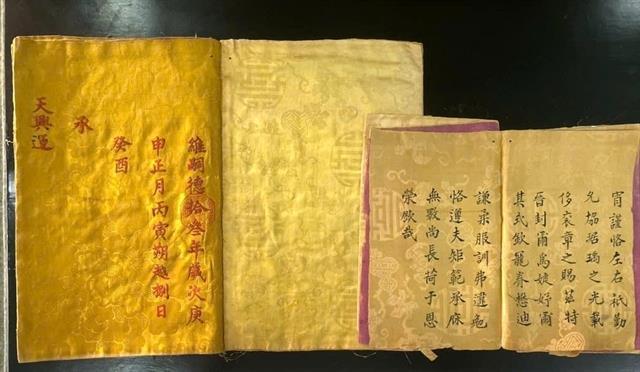 維嗣德拾叁年歲次庚
申正月丙寅朔越捌日
癸酉
承
天興運
謹恪左右祇勤
允協琚瑀之光載
侈袞章之賜茲特
晉封爾爲婕妤爾
其式欽寵眷懋迪
謙柔服訓弗違勉
恪遵夫矩範承庥
無斁尚長荷于恩
榮欽哉